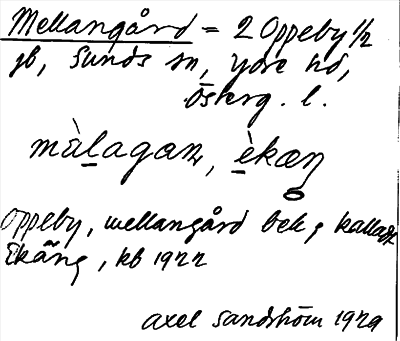 Mellangård = 2 Oppeby 1/2
jb, Sunds sn, Ydre hd,
Österg. l.
mùlagan, èkæŋ
Oppeby, mellangård bek, kallade
Ekäng, kb 1922
Axel Sandström 1929